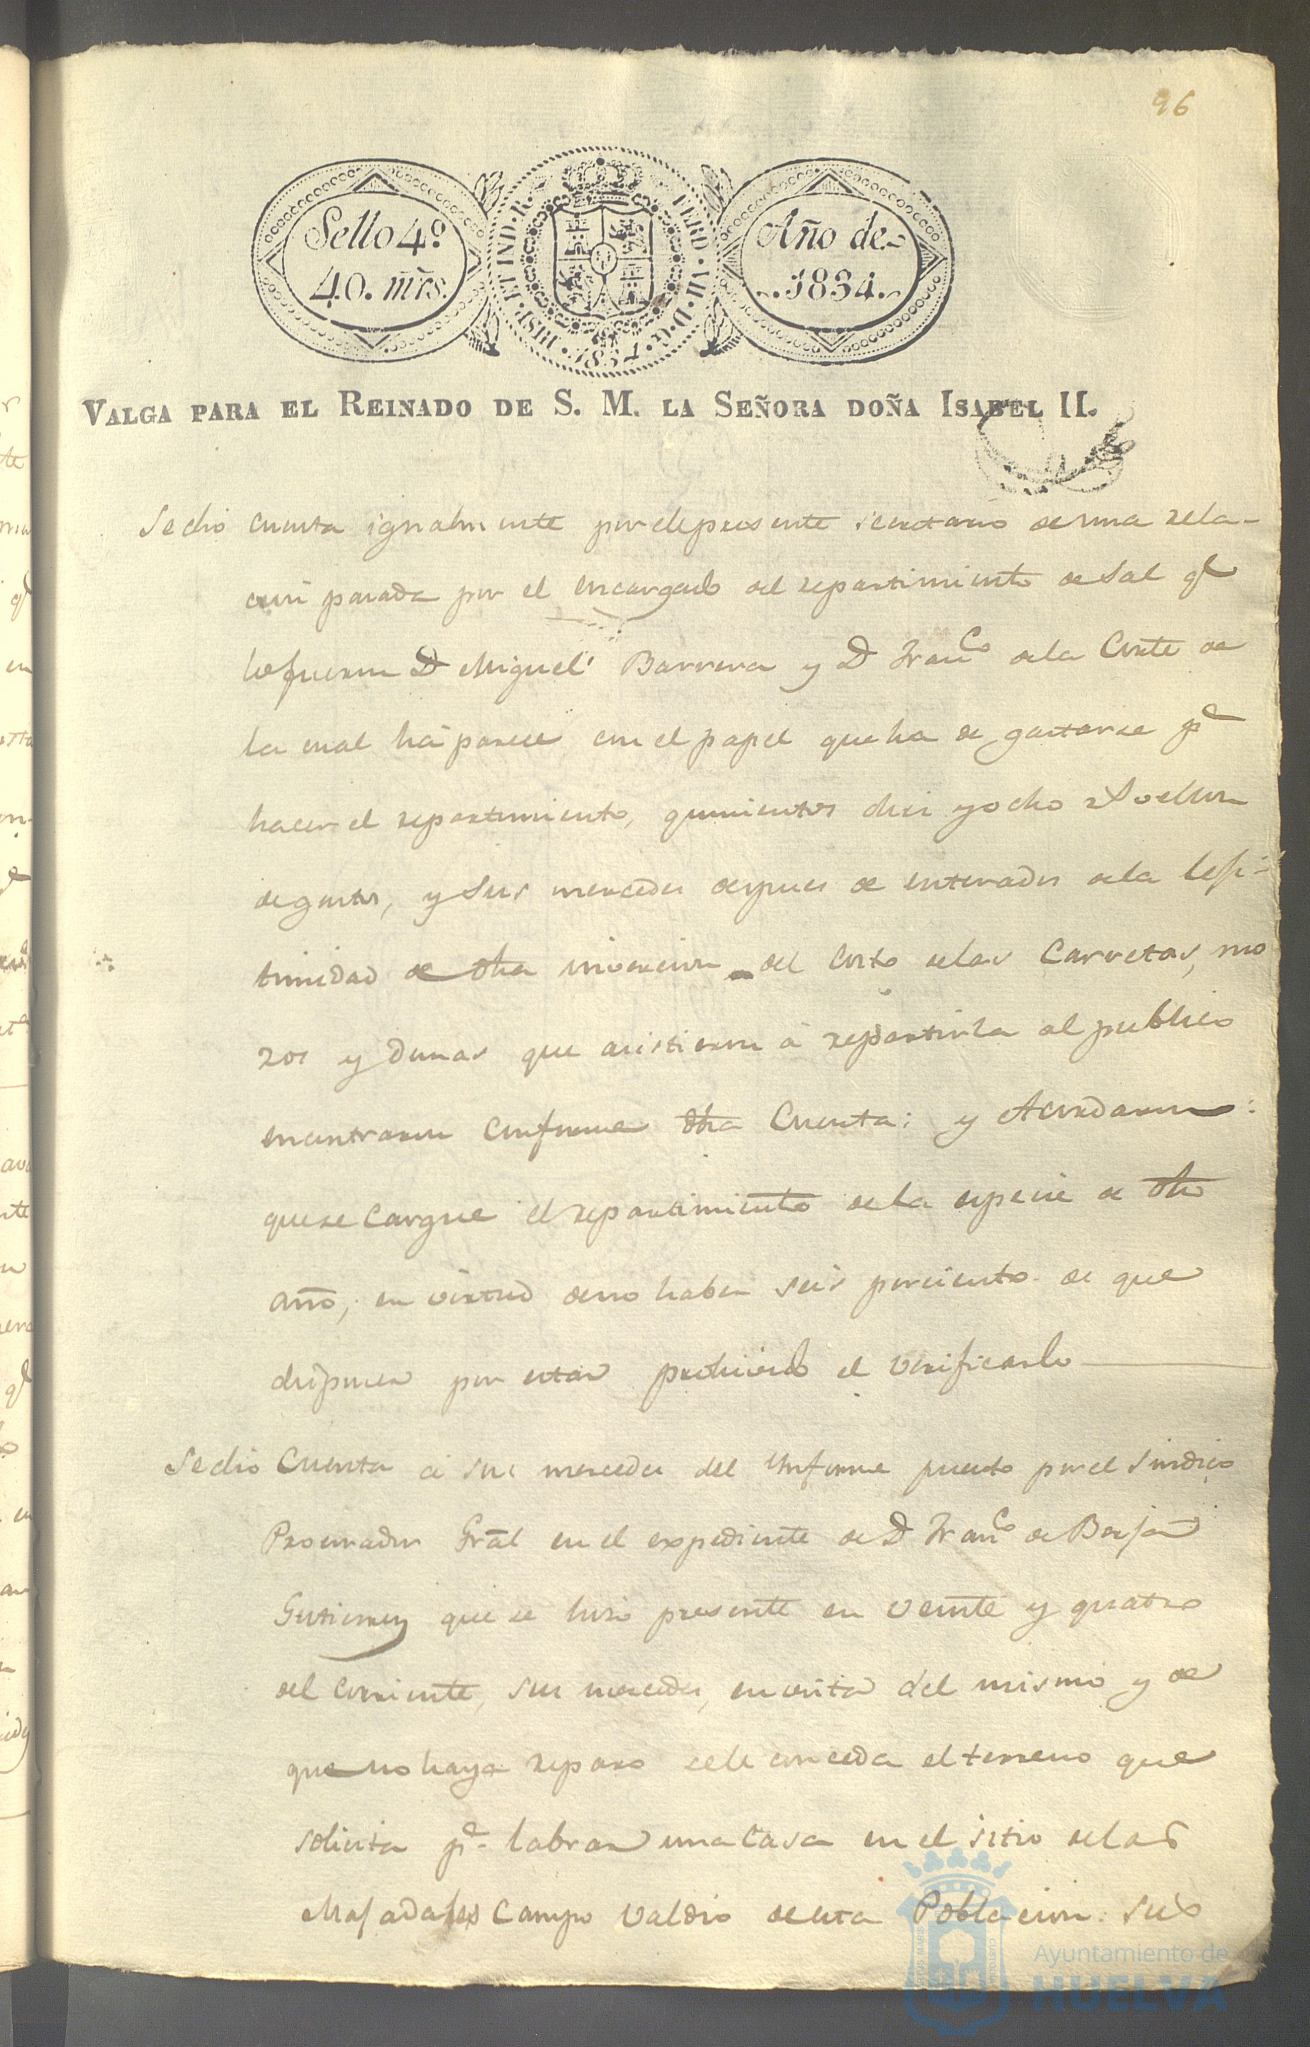 96
Sello 4º
40. mrs.
HISP. ET IND. R. FERD. VII. D. G. 1834
Año de
1834.
VALGA PARA EL REINADO DE S. M. LA SEÑORA DOÑA ISABEL II.
Se dio cuenta igualmente por el presente secretario de una rela-
cion pasada por el encargado del repartimiento de Sal qe
lo fueron Dn Miguel Barrera y Dn Franco de la Corte de
la cual há parece con el papel que ha de gastarse pa
hacer el repartimiento, quinientos diez y ocho rs vellon
de gastos, y Sus mercedes despues de enterados de la lexi-
timidad de dha inversion del costo de las Carretas, mo
zos y demas que asistieron á repartirla al publico
encontraron conforme dha Cuenta: y Acordaron:
que se Cargue el repartimiento de la especie de dho
año, en virtud de no haber seis por ciento de que
disponer por estar prohivido el verificarlo
Se dio Cuenta á sus mercedes del Ynforme puesto por el Sindico
Procurador Gral en el expediente de Dn Franco de Borja
Gutierrez que se hizo presente en veinte y quatro
del corriente, sus mercedes, en vista del mismo y de
que no haya reparo se le conceda el terreno que
solicita pa labrar una Casa en el sitio de las
Majadales Campo Valdio de esta Poblacion: sus
Ayuntamiento de
HUELVA